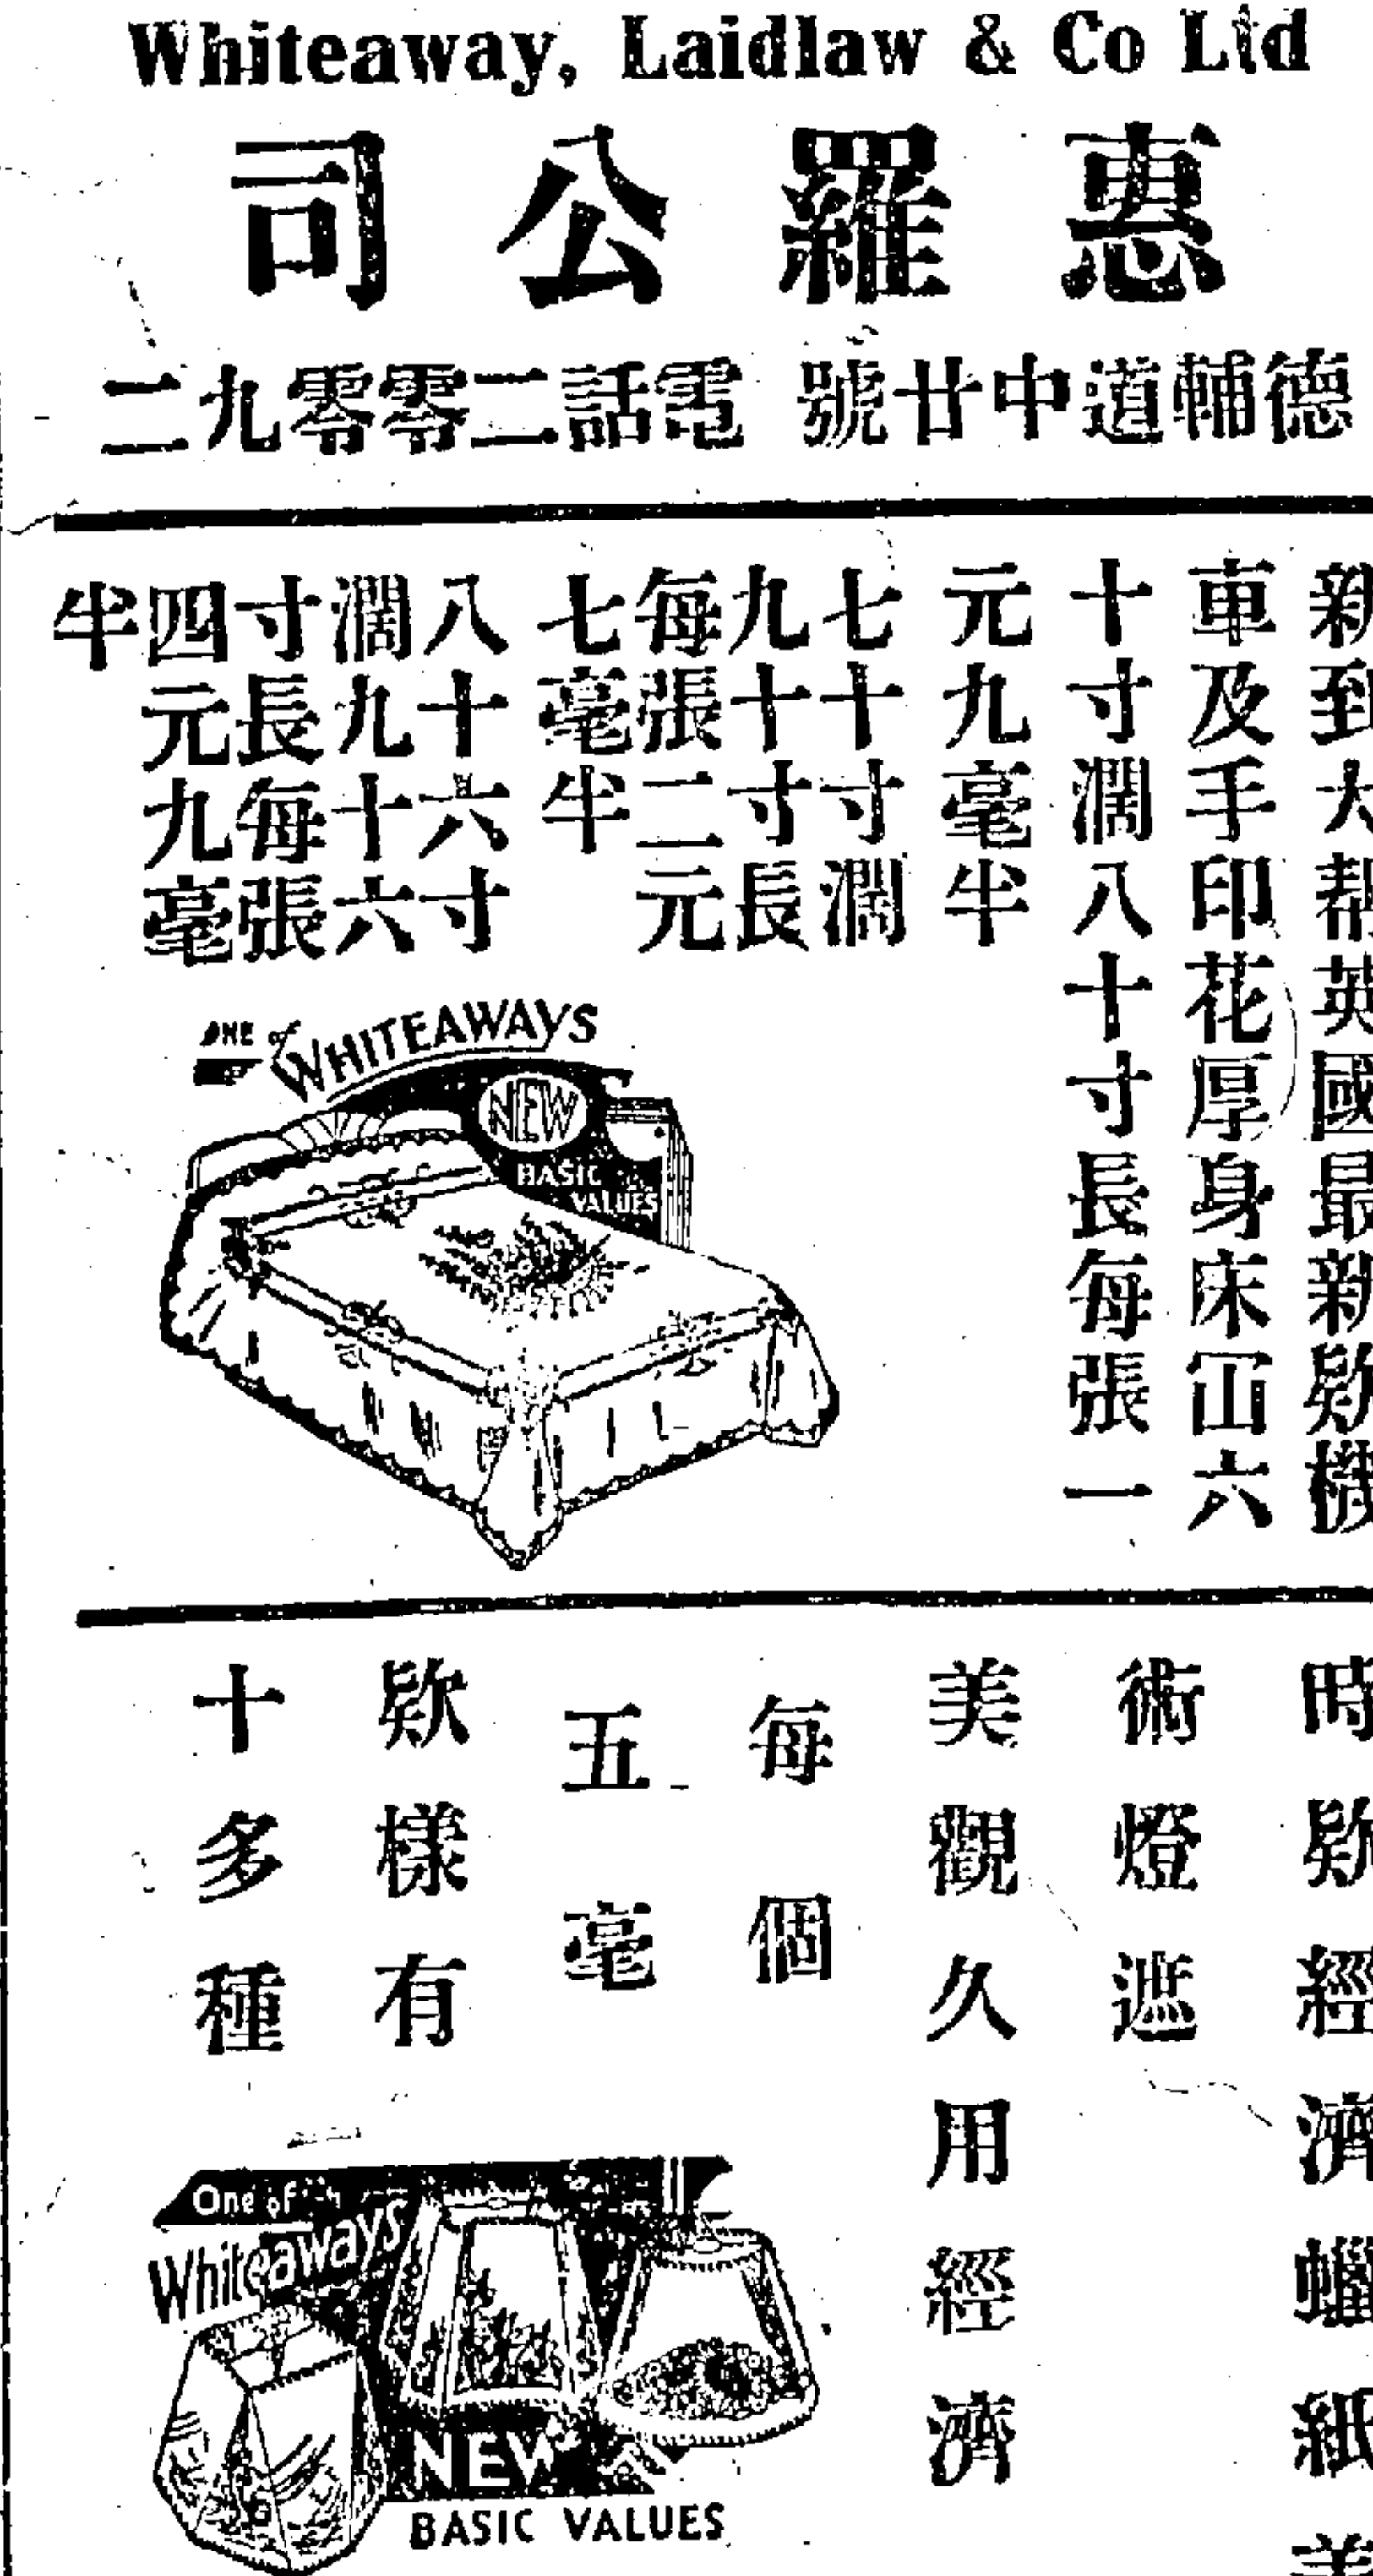 Whiteaway, Laidlaw & Co Ltd
惠羅公司
德輔道中廿號 電話二零零九二
新到大幫英國最新欵機
車及手印花厚身床冚六
十寸濶八十寸長每張一
元九毫半
七十寸濶
九十寸長
每張二元
七毫半
八十六寸
濶九十六
寸長每張
四元九毫
半
ONE of
WHITEAWAYS
NEW
BASIC
VALUES
時欵經濟蠟紙美
術燈遮
美觀久用經濟
每個
五毫
欵樣有
十多種
One of
Whiteaways
NEW
BASIC VALUES